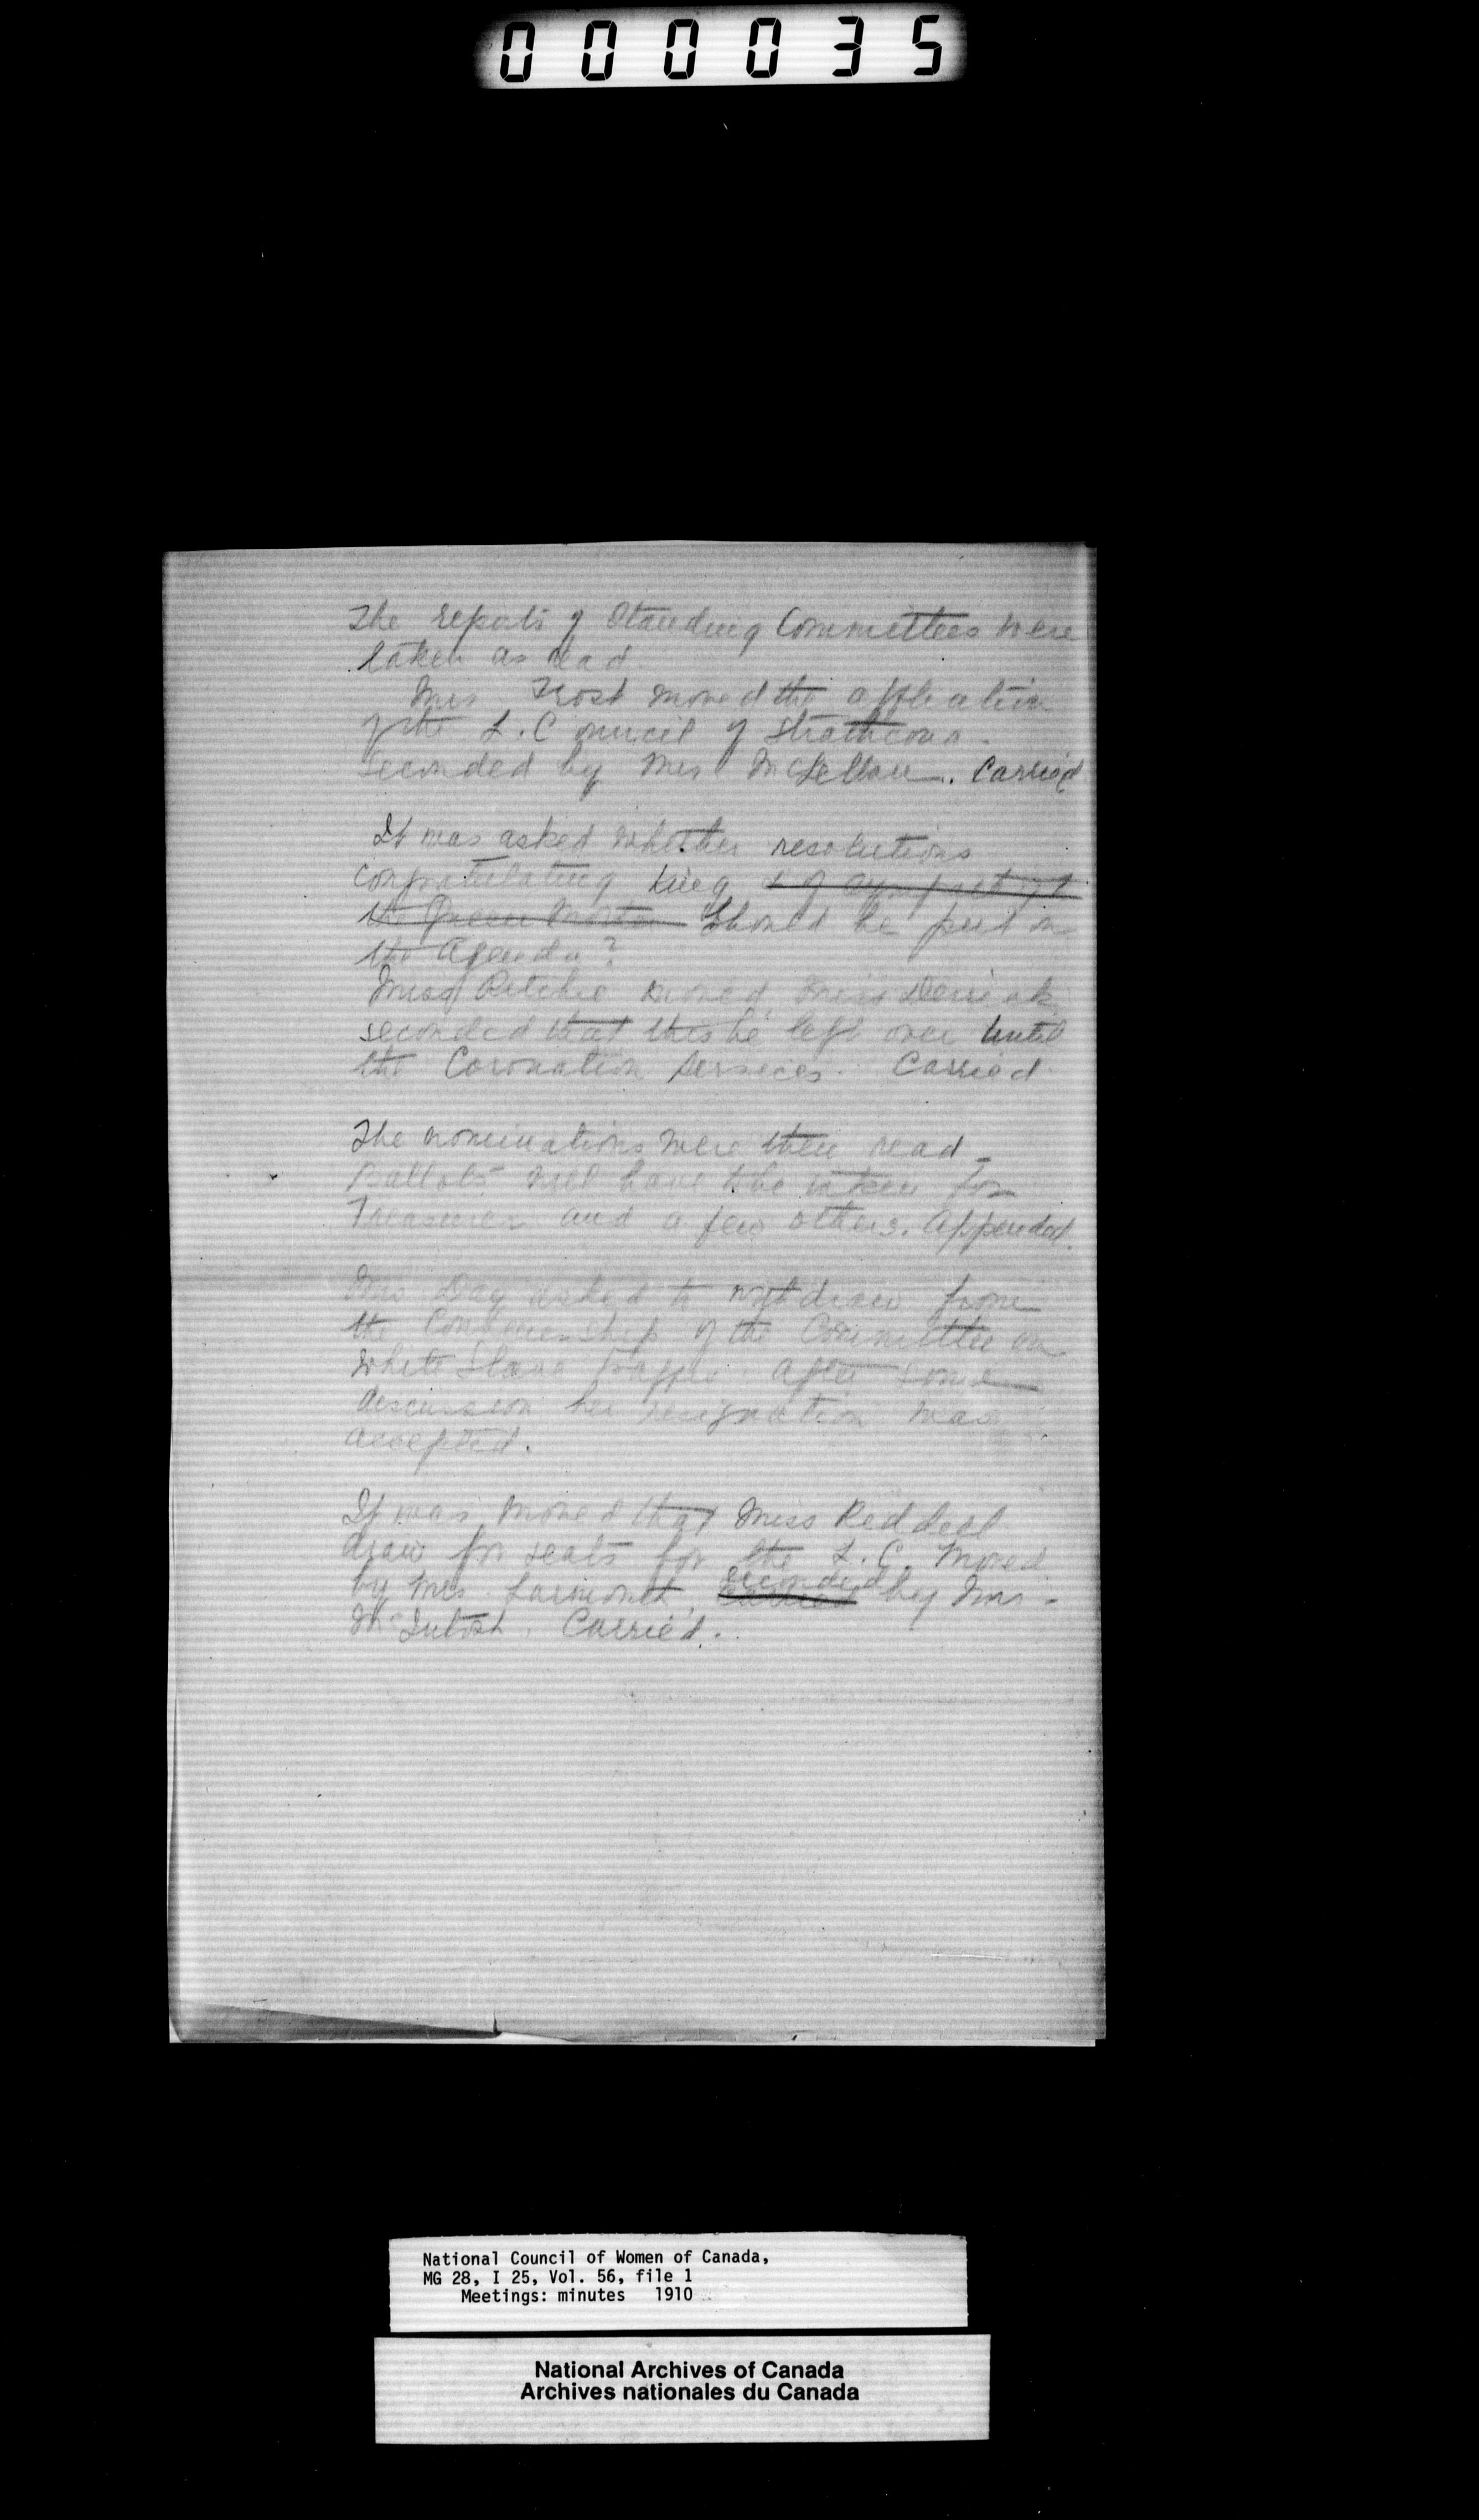 000035
The reports of Standing Committees were
taken as read
Mrs Frost moved the affiliation
of the L. Council of Strathcona -
Seconded by Mrs McLellan. Carried
It was asked whether resolutions
congratulating King & of sympathy to
the Queen Mother should be put on
the Agenda?
Miss Ritchie moved, Miss Derrick
seconded that this be left over until
the Coronation Services. Carried
The nominations were then read -
Ballots will have to be taken for
Treasurer and a few others. Appended.
Mrs Day asked to withdraw from
the Convenership of the Committee on
White Slave Traffic. After some
discussion her resignation was
accepted.
It was moved that Miss Reddell
draw for seats for the L.C. Moved
by Mrs. Larmonth, seconded by Mrs -
McIntosh. Carried.
National Council of Women of Canada,
MG 28, I 25, Vol. 56, file 1
Meetings: minutes 1910
National Archives of Canada
Archives nationales du Canada